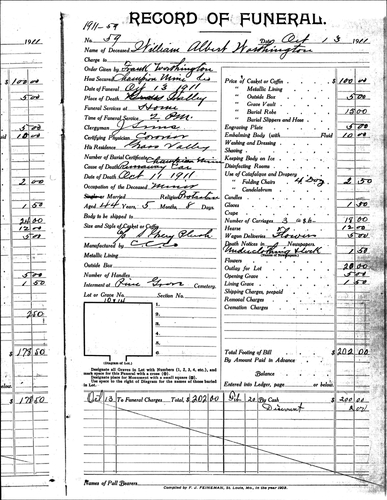 1911-59
RECORD OF FUNERAL.
1911
No. 59
Date Oct 13 1911
Name of Deceased William Albert Worthington
Charge to
Order Given by Frank Worthington
How Secured Champion Mine
Date of Funeral Oct 13 1911
Place of Death Grass Valley
Funeral Services at Home
Time of Funeral Service 2 P.M.
Clergyman J Sims
Certifying Physician Coroner
His Residence Grass Valley
Number of Burial Certificate
Cause of Death
Date of Death Oct 11 1911
Occupation of the Deceased Miner
Single or Married Religion Protestant
Aged 44 Years, 5 Months, 8 Days.
Body to be shipped to
Size and Style of Casket or Coffin
Manufactured by C C Co
Metallic Lining
Outside Box
Number of Handles
Interment at Pine Grove Cemetery.
Lot or Grave No. Section No.
1.
2.
3.
4.
5.
6.
(Diagram of Lot.)
Designate all Graves in Lot with Numbers (1, 2, 3, 4, etc.), and
mark space for this Funeral with a cross
Designate place for Monument with a small square
Use space to the right of Diagram for the names of those buried
in Lot.
Price of Casket or Coffin $100.00
" Metallic Lining
" Outside Box 5.00
" Grave Vault
" Burial Robe 15.00
" Burial Slippers and Hose
Engraving Plate 5.00
Embalming Body (with Fluid) 10.00
Washing and Dressing
Shaving
Keeping Body on Ice
Disinfecting Rooms
Use of Catafalque and Drapery
" Folding Chairs 4 Doz 2.50
" Candelabrum
Candles
Gloves 1.50
Crape
Number of Carriages 3 18.00
Hearse 12.00
Wagon Deliveries Flowers 5.00
Death Notices in Newspapers
Underclothing 1.50
Flowers
Outlay for Lot 20.00
Opening Grave 5.00
Lining Grave 1.50
Shipping Charges, prepaid
Removal Charges
Cremation Charges
Total Footing of Bill $202.00
By Amount Paid in Advance
Balance
Entered into Ledger, page or below.
Oct 13 To Funeral Charges Total, $202.00
20 By Cash $200.00
Discount 2.00
Names of Pall Bearers
Compiled by F. J. FEINEMAN, St. Louis, Mo., in the year 1903.